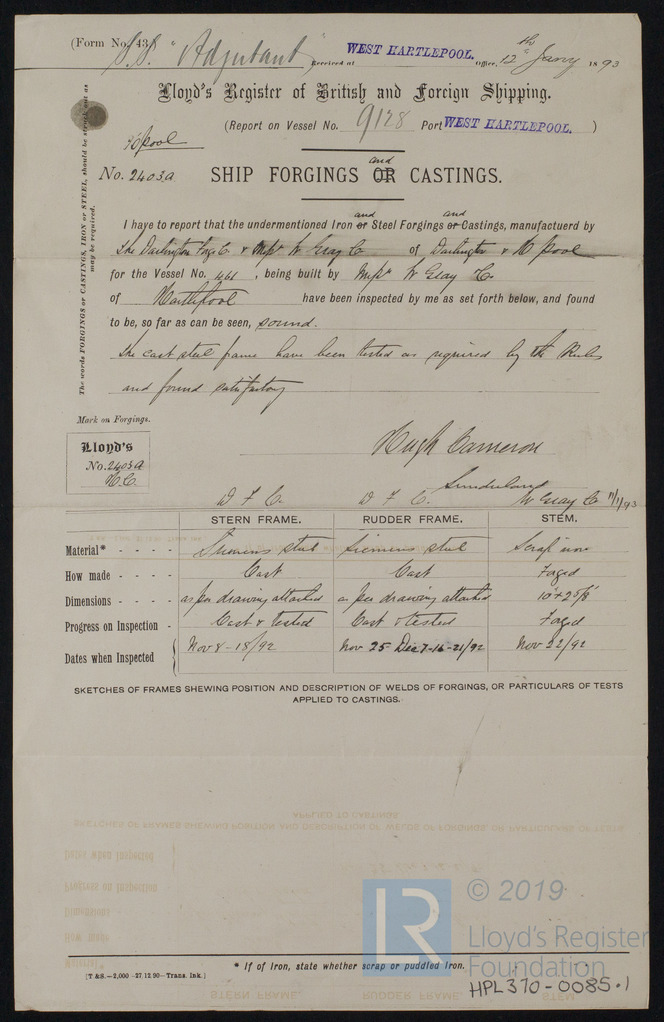 (Form No. 43.) S.S. "Adjutant" Received at WEST HARTLEPOOL. Office, 12th Jany 1893
Lloyd's Register of British and Foreign Shipping.
(Report on Vessel No. 9128 Port WEST HARTLEPOOL. )
H'pool
and
No. 2403a SHIP FORGINGS OR CASTINGS.
The words FORGINGS or CASTINGS, IRON or STEEL, should be struck out as may be required.
and and
I haye to report that the undermentioned Iron or Steel Forgings or Castings, manufactuerd by
The Darlington Forge Co & Messrs W Gray & Co of Darlington & H'pool
for the Vessel No. 461, being built by Messrs W Gray & Co.
of Hartlepool have been inspected by me as set forth below, and found
to be, so far as can be seen, sound.
The cast steel frame have been tested as required by the Rules
and found satisfactory
Mark on Forgings.
Hugh Cameron
Lloyd's
No. 2403a
H.C.
Sunderland
D F C. D F C. W Gray Co 11/1/93
STERN FRAME. RUDDER FRAME. STEM.
Material* - - - - Siemens steel Siemens steel Scrap iron
How made - - - - Cast Cast Forged
Dimensions - - - - as per drawing attached as per drawing attached 10 x 2 5/8
Progress on Inspection - Cast & tested Cast & tested Forged
Dates when Inspected Nov 8 - 18/92 Nov 25 Dec 7-16-21/92 Nov 22/92
SKETCHES OF FRAMES SHEWING POSITION AND DESCRIPTION OF WELDS OF FORGINGS, OR PARTICULARS OF TESTS
APPLIED TO CASTINGS.
LR
© 2019
Lloyd's Register
Foundation
* If of Iron, state whether scrap or puddled Iron.
[T & S.—2,000 -27.12.90—Trans. Ink.]
HPL370-0085.1